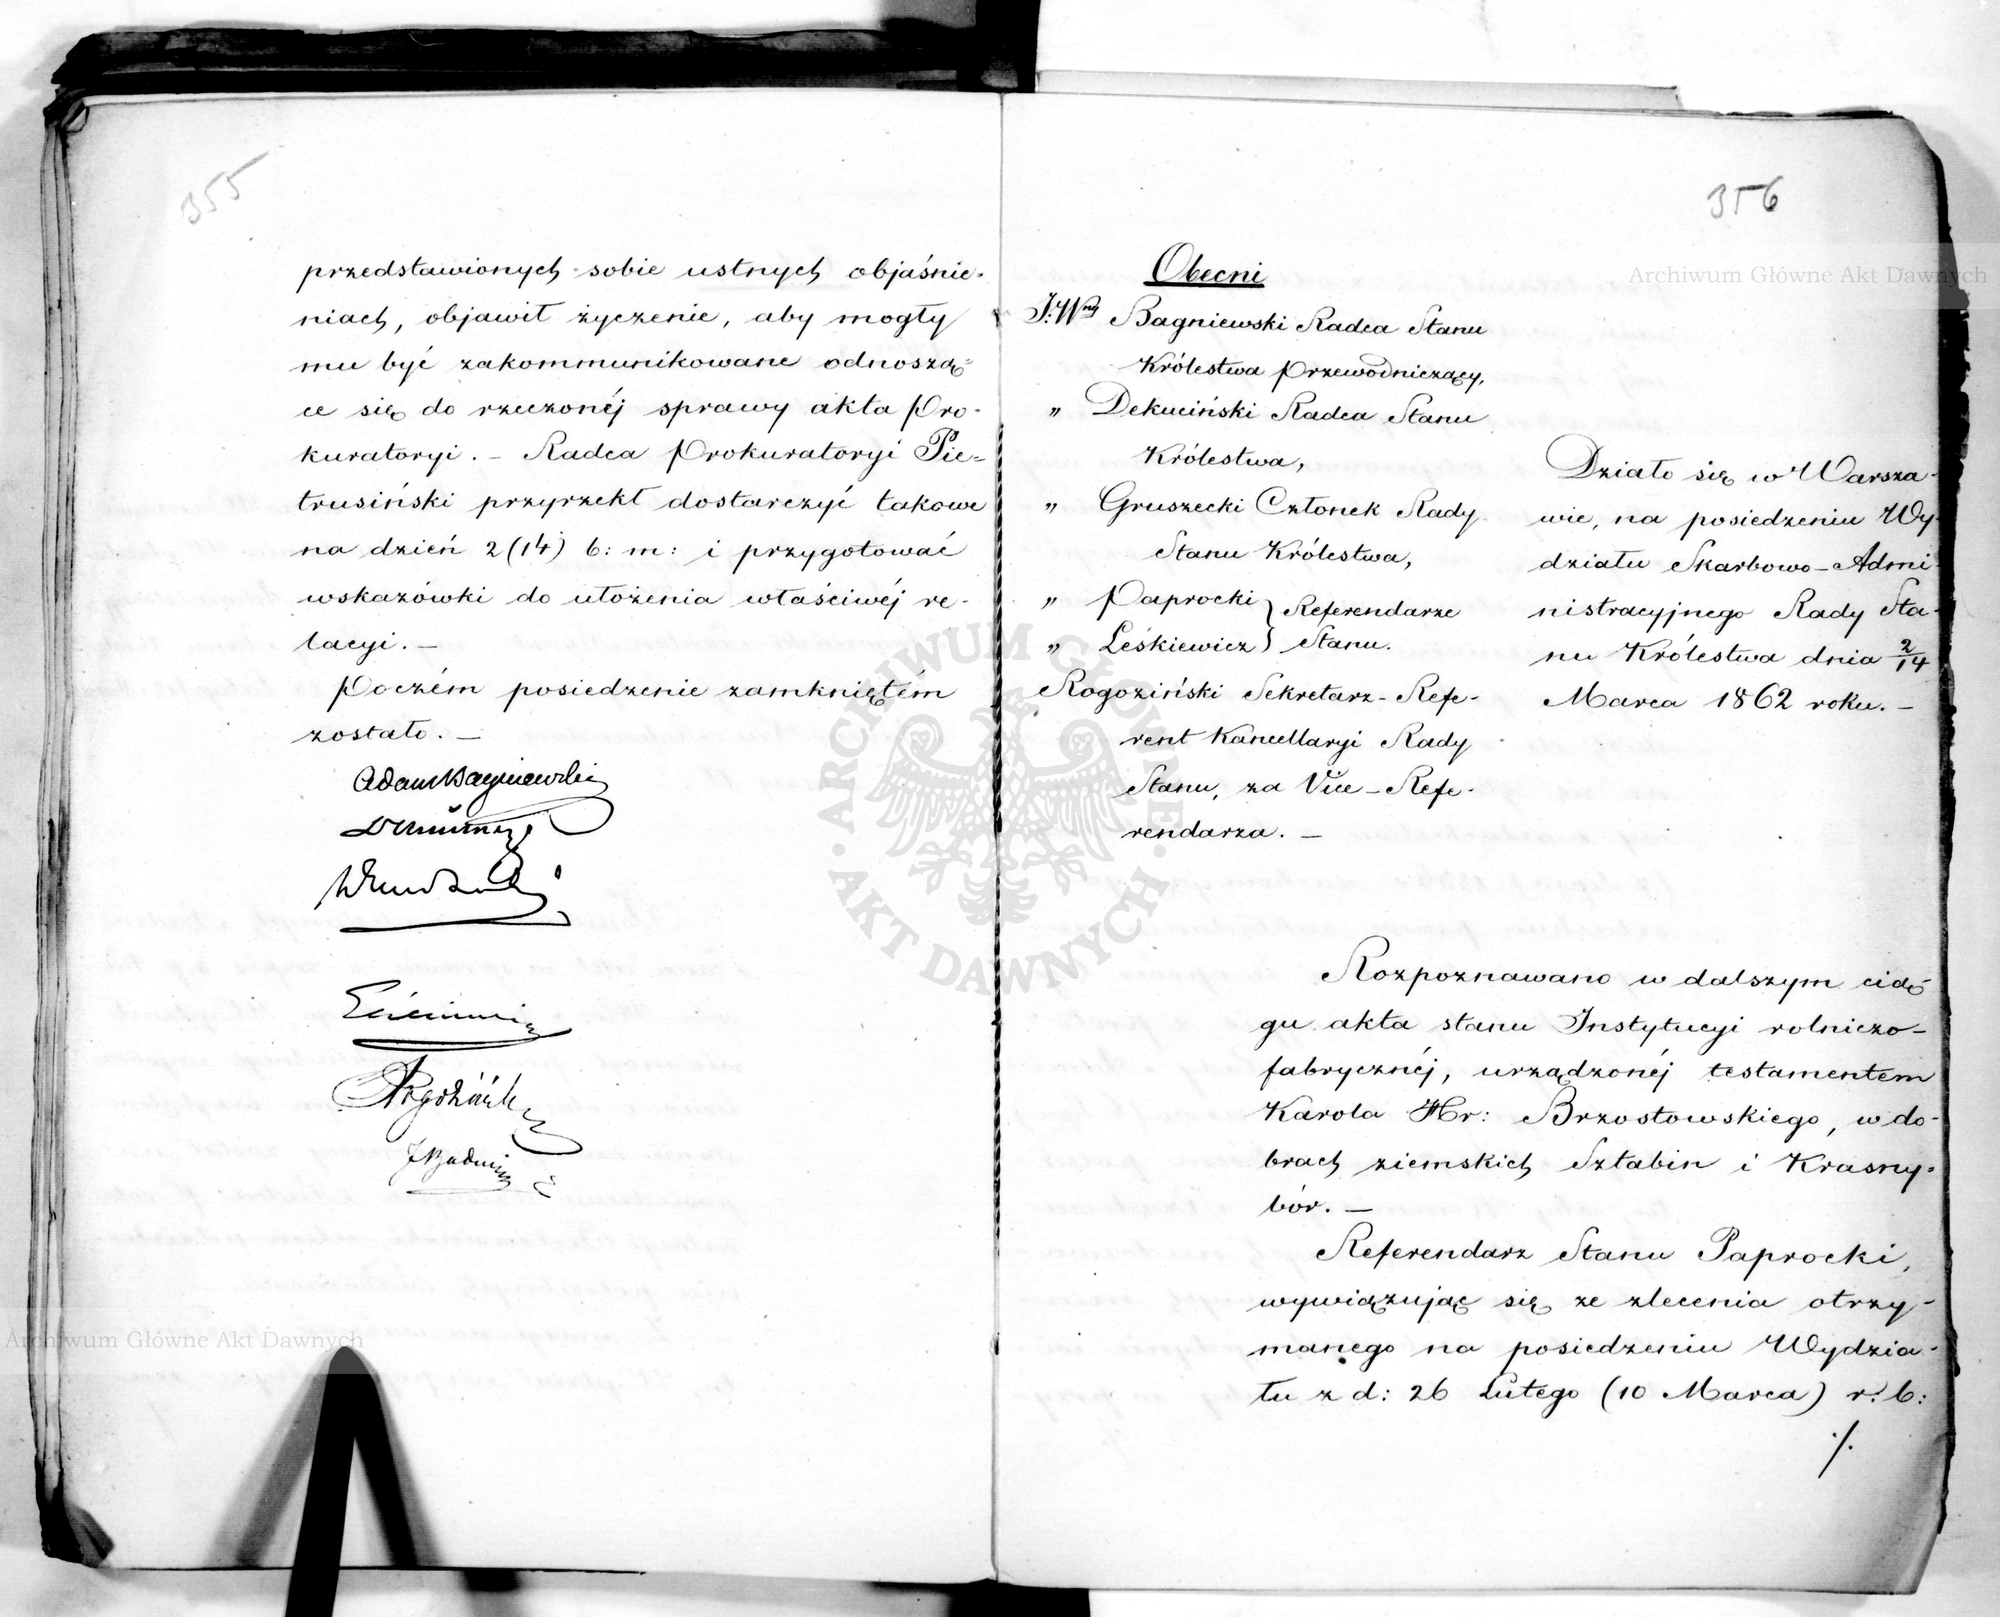 355
przedstawionych sobie ustnych objaśnie-
niach, objawił życzenie, aby mogły
mu być zakommunikowane odnoszą-
ce się do rzeczonéj sprawy akta Pro-
kuratoryi. – Radca Prokuratoryi Pie-
trusiński przyrzekł dostarczyć takowe
na dzień 2 (14) b: m: i przygotować
wskazówki do ułożenia właściwéj re-
lacyi. –
Poczém posiedzenie zamkniętém
zostało. –
Adam Bagniewski
356
Obecni
J:Wny Bagniewski Radca Stanu
Królestwa Przewodniczący,
" Dekuciński Radca Stanu
Królestwa,
" Gruszecki Członek Rady
Stanu Królestwa,
" Paprocki } Referendarze
" Leśkiewicz } Stanu.
Rogoziński Sekretarz-Refe-
rent Kancellaryi Rady
Stanu, za Vice-Refe-
rendarza. –
Działo się w Warsza-
wie, na posiedzeniu Wy-
działu Skarbowo-Admi-
nistracyjnego Rady Sta-
nu Królestwa dnia 2/14
Marca 1862 roku. –
Rozpoznawano w dalszym cią-
gu akta stanu Instytucyi rolniczo-
fabrycznéj, urządzonéj testamentem
Karola Hr: Brzostowskiego, w do-
brach ziemskich Sztabin i Krasny-
bór. –
Referendarz Stanu Paprocki,
wywiązując się ze zlecenia otrzy-
manego na posiedzeniu Wydzia-
łu z d: 26 Lutego (10 Marca) r. b:
./.
Archiwum Główne Akt Dawnych
Archiwum Główne Akt Dawnych
ARCHIWUM GŁÓWNE · AKT DAWNYCH ·